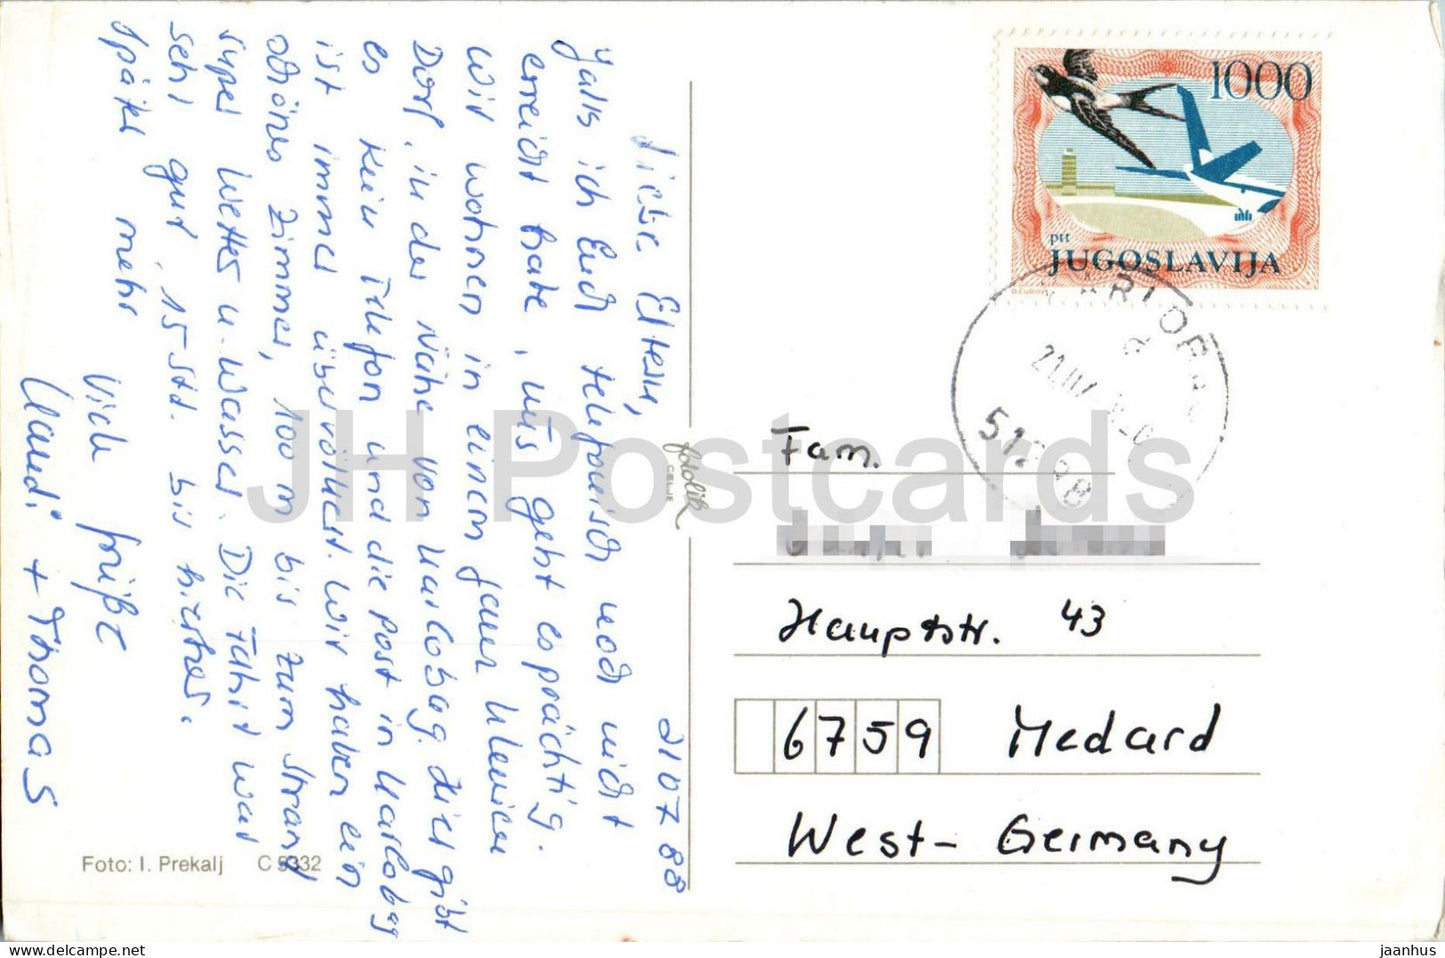 21 07 88
Liebe Eltern,
Falls ich Euch telefonisch noch nicht
erreicht habe, uns geht es prächtig.
Wir wohnen in einem ganz kleinen
Dorf, in der Nähe von Karlobag. Hier gibt
es kein Telefon und die Post in Karlobag
ist immer überfüllt. Wir haben ein
schönes Zimmer, 100 m bis zum Strand,
super Wetter u. Wasser. Die Fahrt war
sehr gut, 15 Std. bis hierher.
Später mehr
Viele Grüße
+ Thomas
Foto: I. Prekalj C 5332
fotolik
CELJE
1000
ptt
JUGOSLAVIJA
KARLOBAG
Fam.
Hauptstr. 43
6759 Medard
West-Germany
JH Postcards
jaanhus